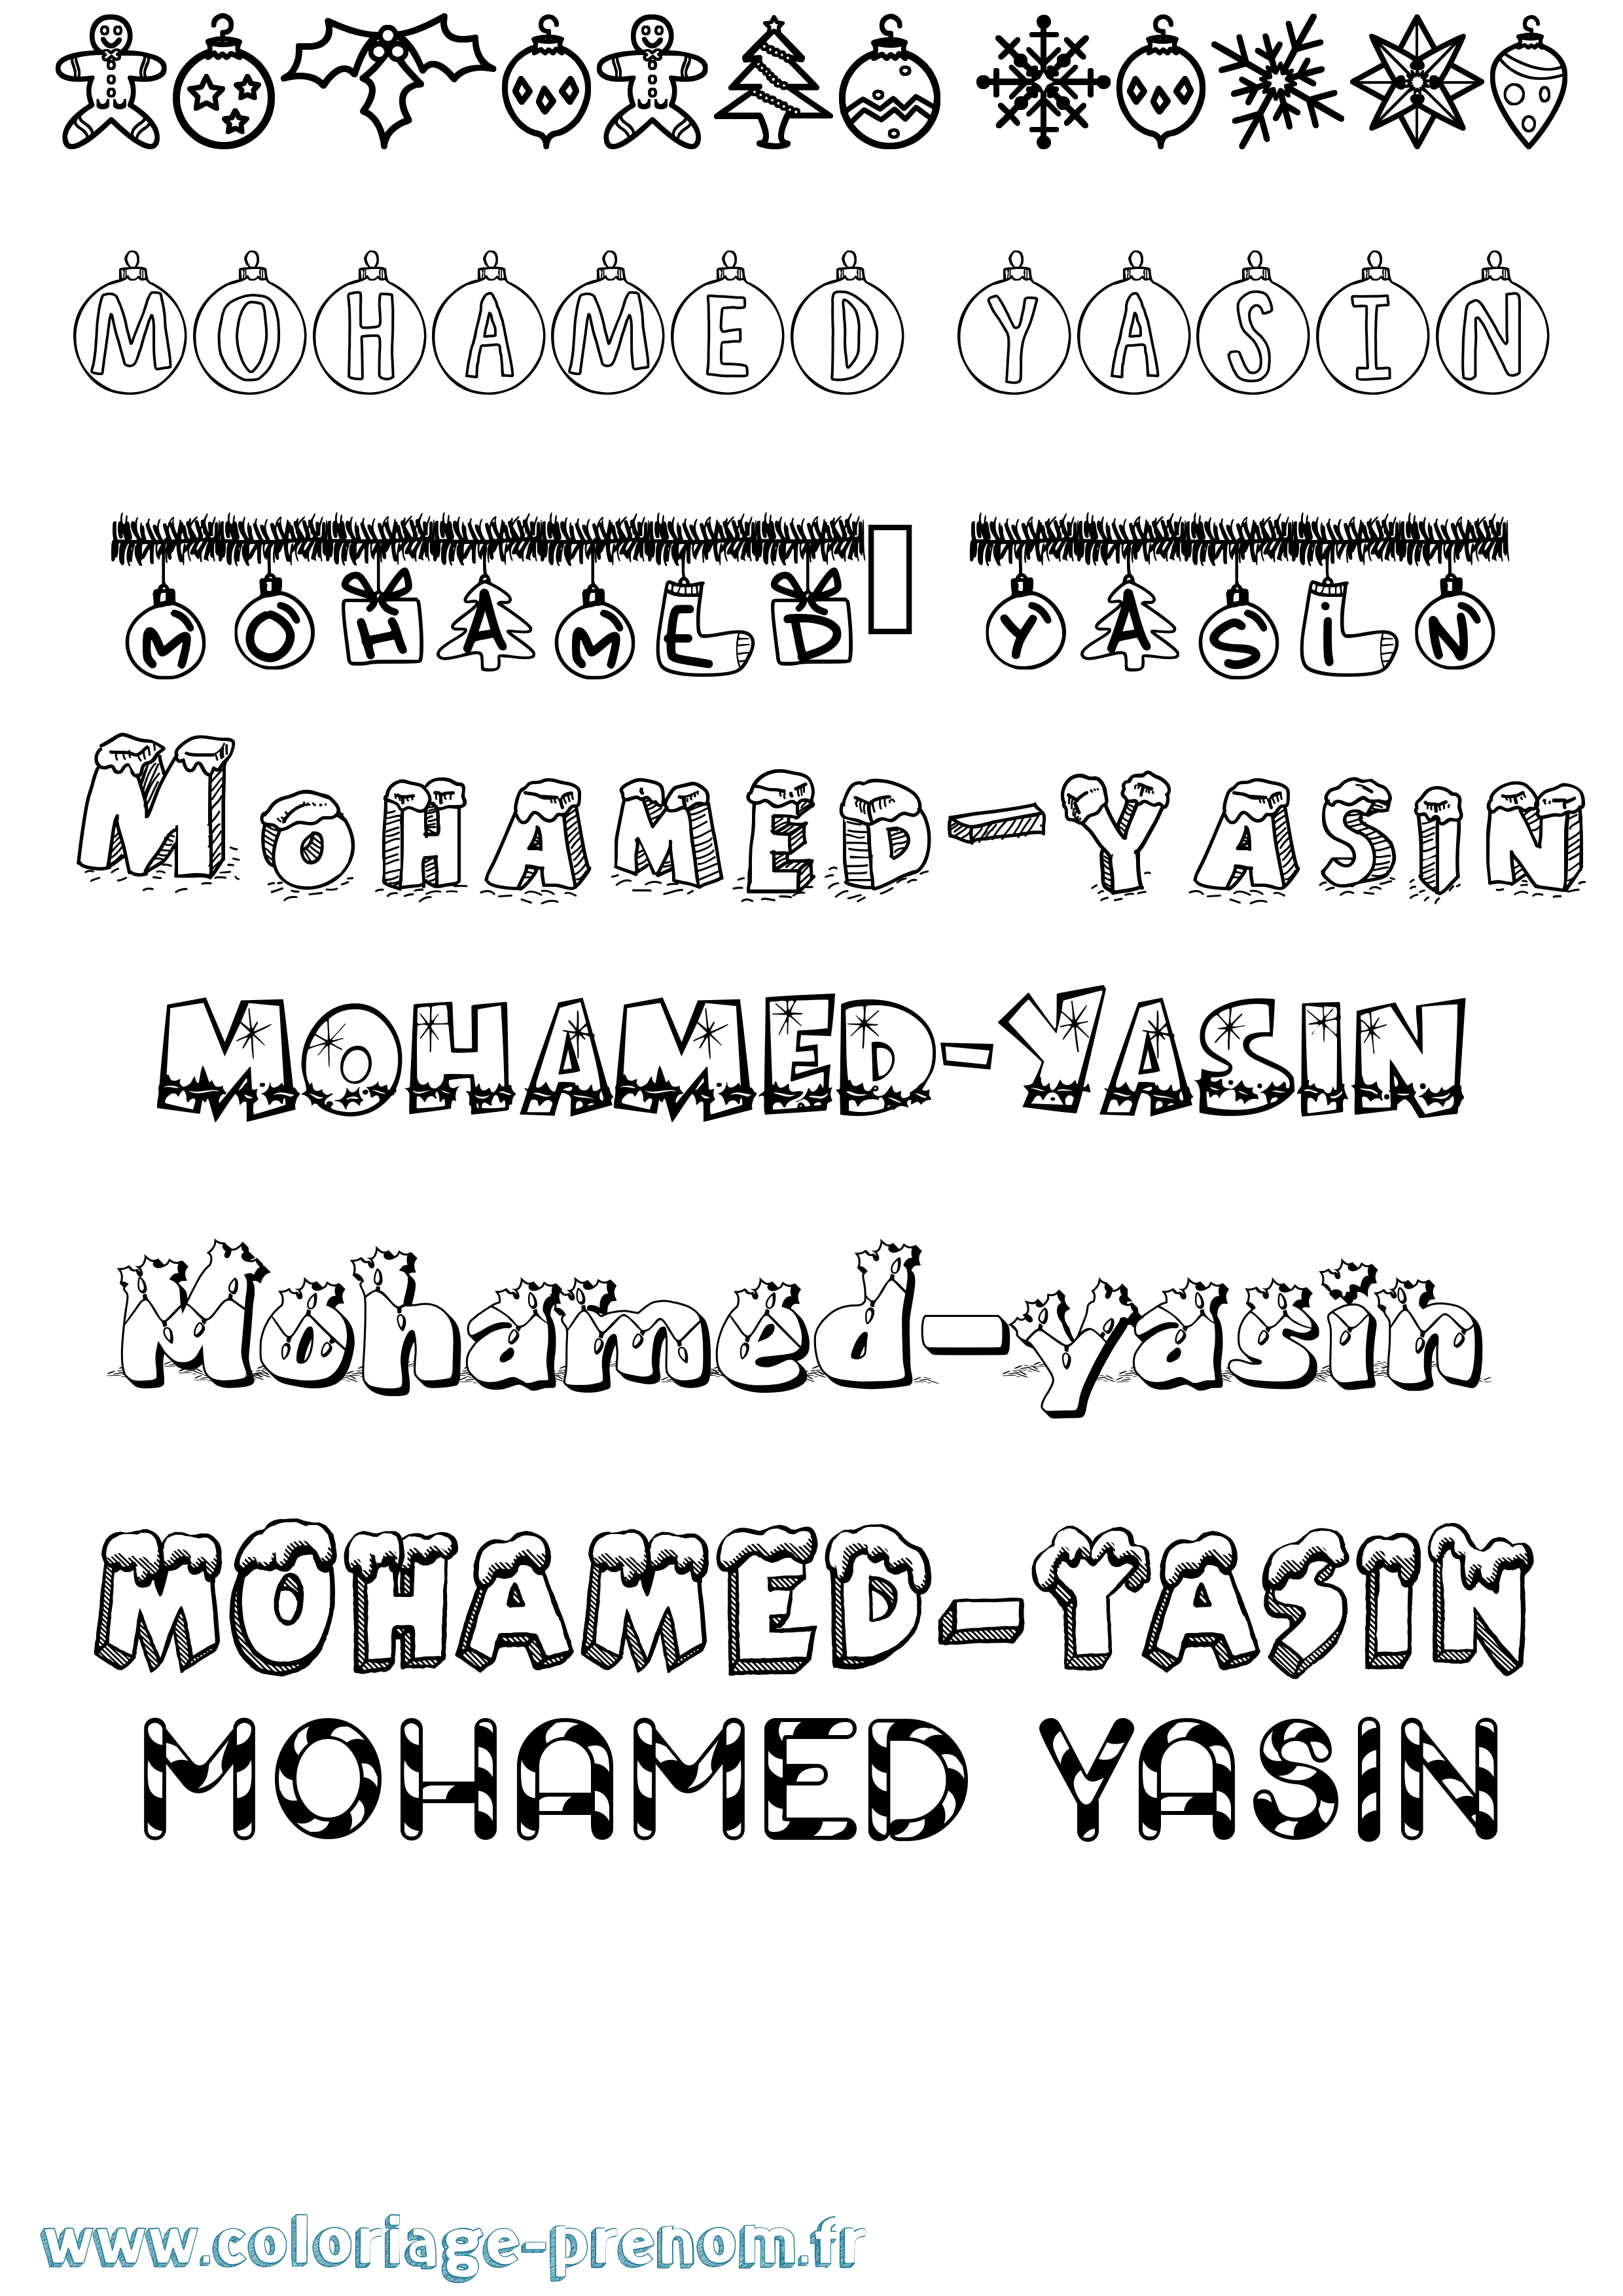 MOHAMED YASIN
MOHAMED YASiN
MOHAMED-YASiN
MOHAMED-YASIN
Mohamed-yasin
MOHAMED-YASIN
MOHAMED YASIN
www.coloriage-prenom.fr